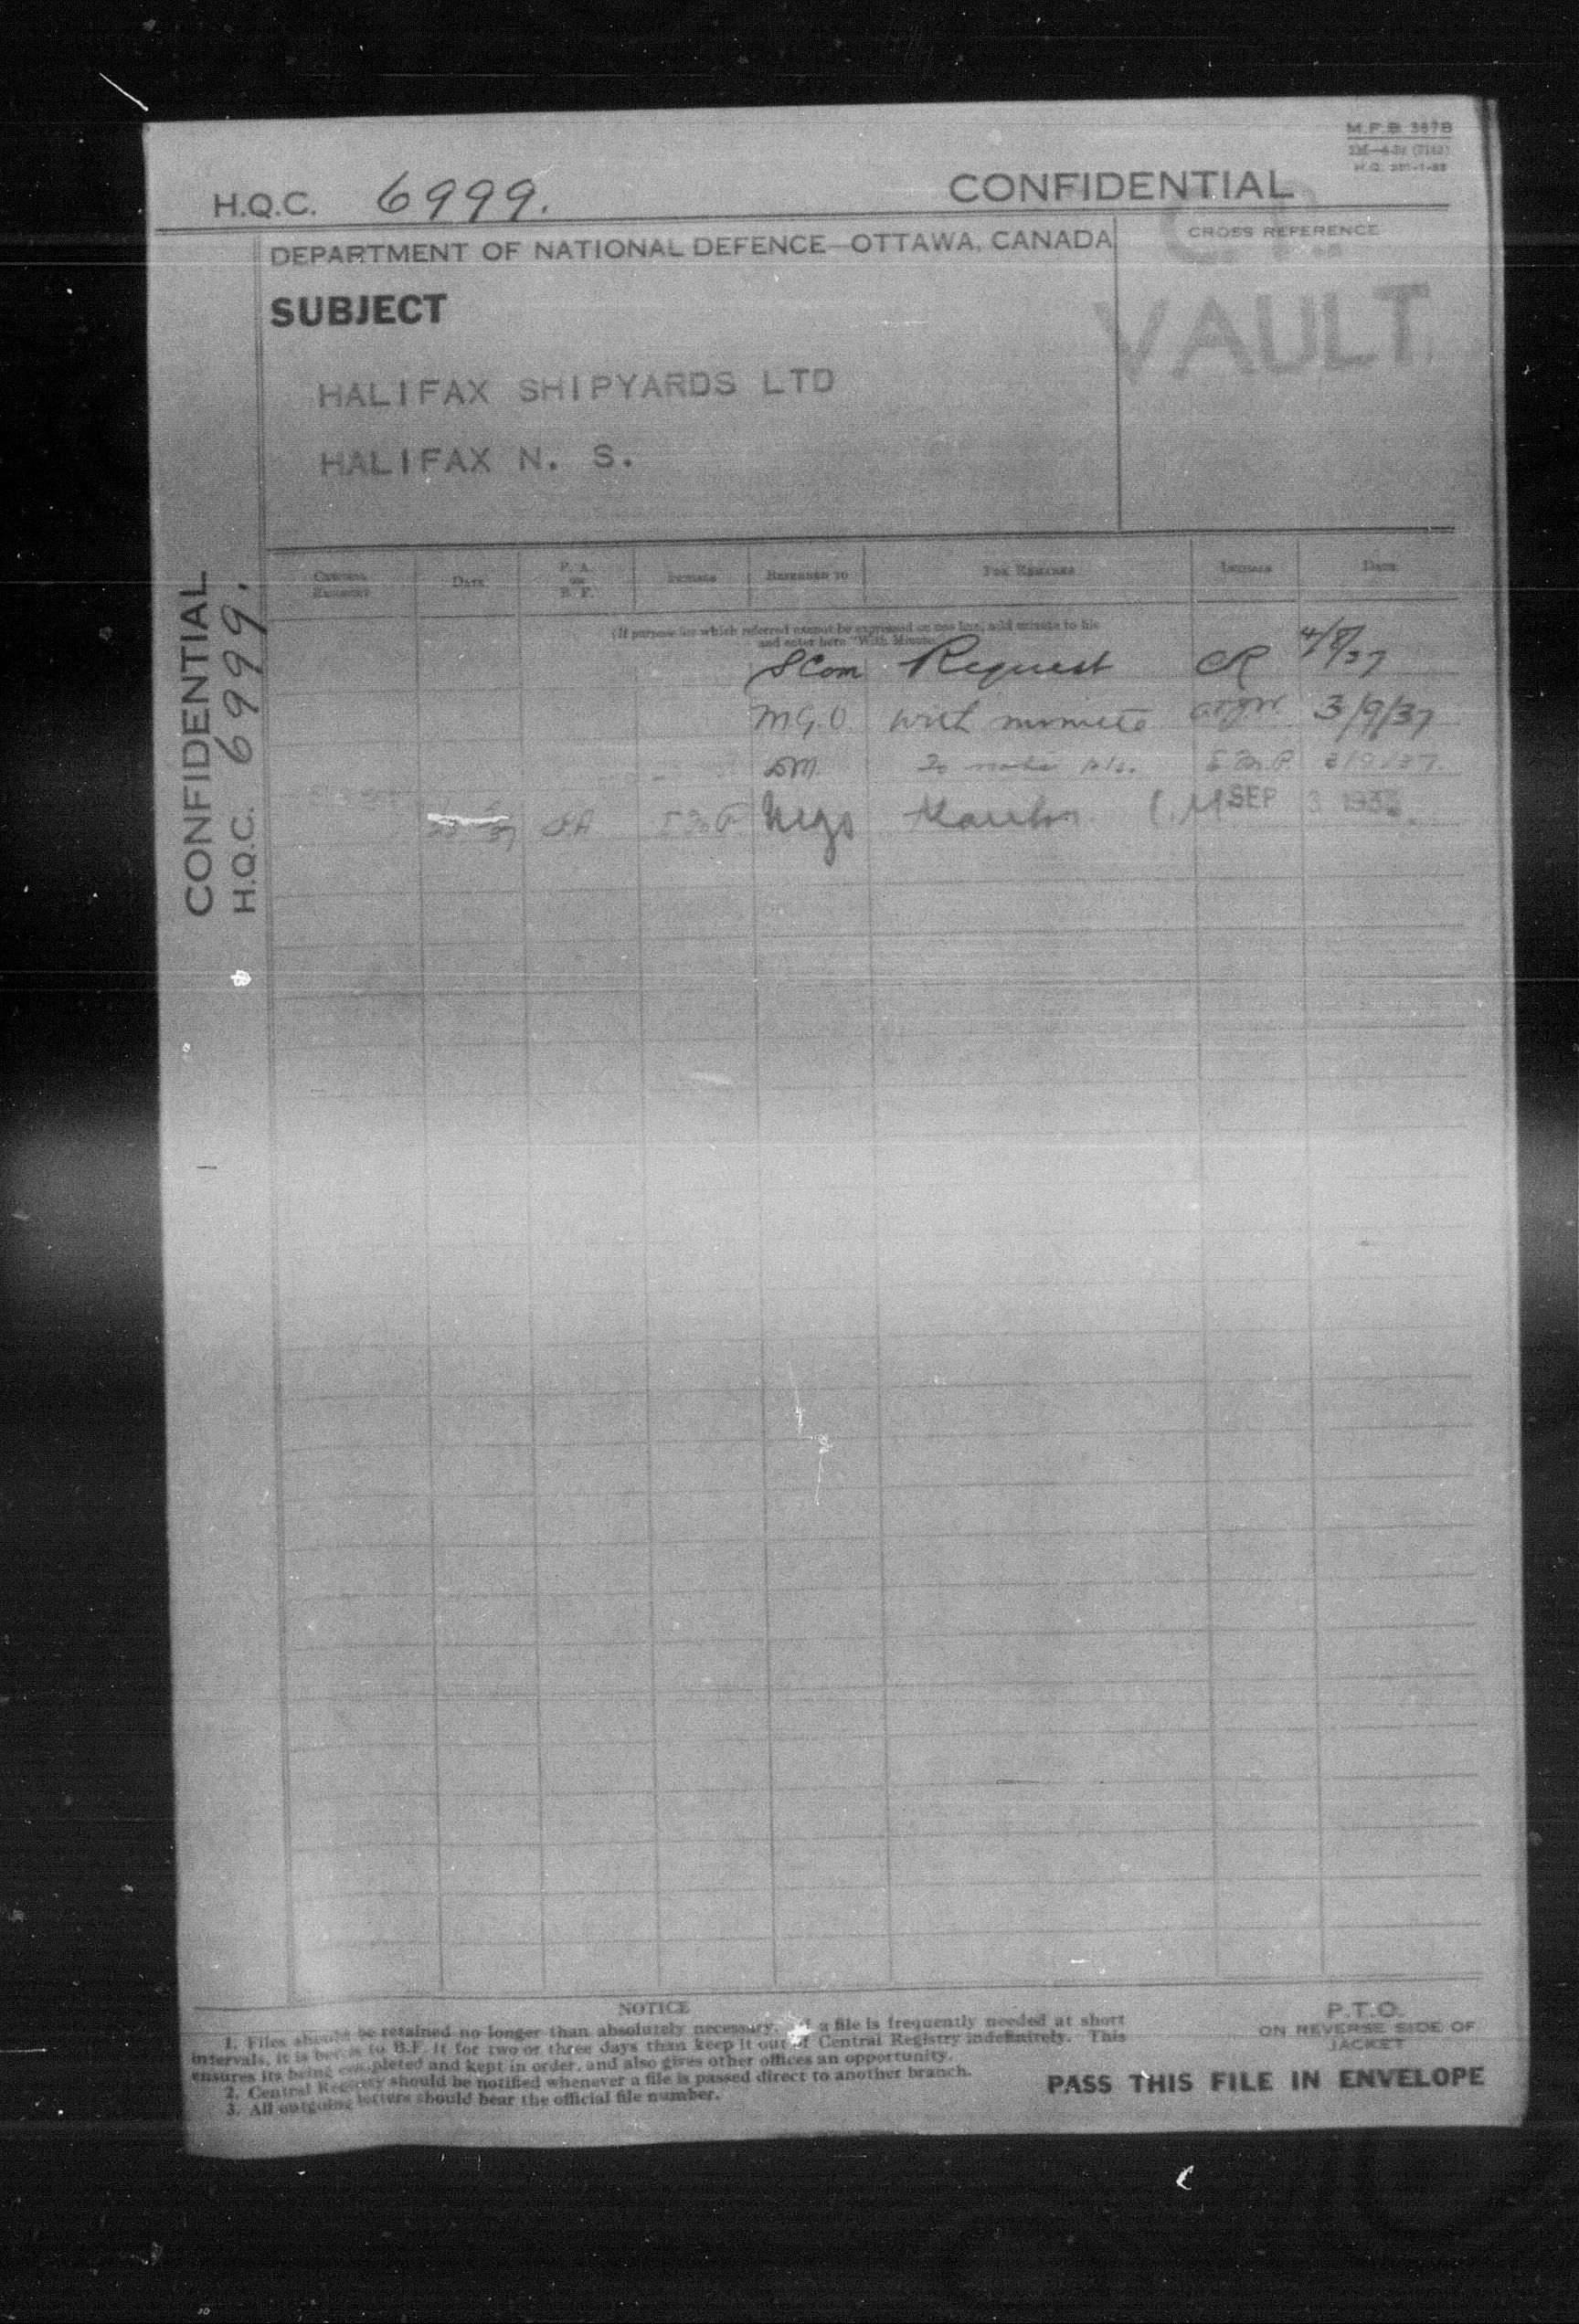 M.F.B. 387B
H.Q.C. 6999.
CONFIDENTIAL
DEPARTMENT OF NATIONAL DEFENCE—OTTAWA, CANADA
CROSS REFERENCE
SUBJECT
VAULT
HALIFAX SHIPYARDS LTD
HALIFAX N. S.
CONFIDENTIAL
H.Q.C. 6999.
DATE P. A. or B. F. INITIALS REFERRED TO FOR REMARKS INITIALS DATE
(If purpose for which referred cannot be expressed on one line, add minute to file
and enter here "With Minute")
Request CR 4/8/37
M.G.O. with minute 3/9/37
DM. To 3/9/37.
SEP 3
NOTICE
1. Files should be retained no longer than absolutely necessary. If a file is frequently needed at short
intervals, it is better to B.F. it for two or three days than keep it out of Central Registry indefinitely. This
ensures its being completed and kept in order, and also gives other offices an opportunity.
2. Central Registry should be notified whenever a file is passed direct to another branch.
3. All outgoing letters should bear the official file number.
P.T.O.
ON REVERSE SIDE OF
JACKET
PASS THIS FILE IN ENVELOPE